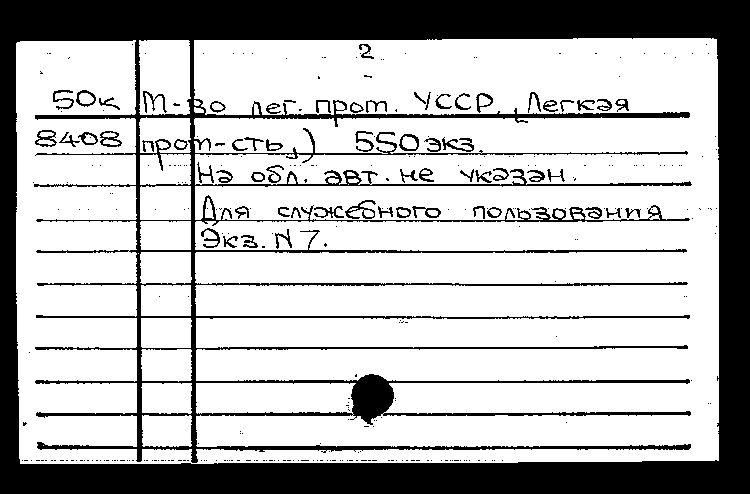 2
50к М-во лег. пром. УССР. „Легкая
8408 пром-сть„) 550 экз.
На обл. авт. не указан.
Для служебного пользования
Экз. N 7.